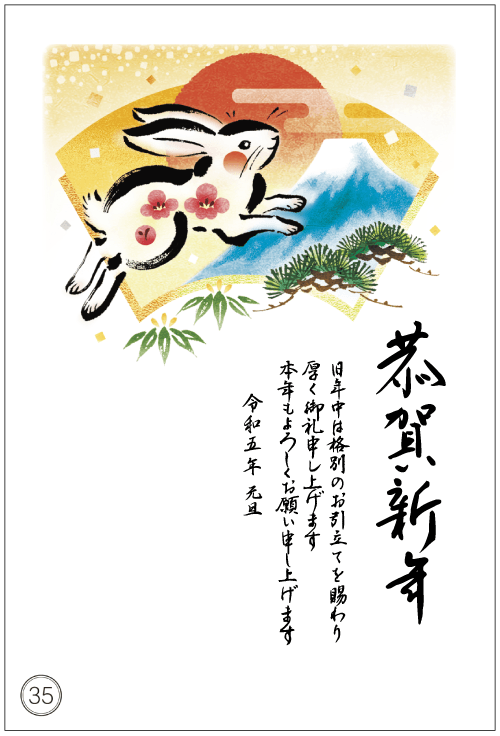 恭賀新年
旧年中は格別のお引立てを賜わり
厚く御礼申し上げます
本年もよろしくお願い申し上げます
令和五年 元旦
35